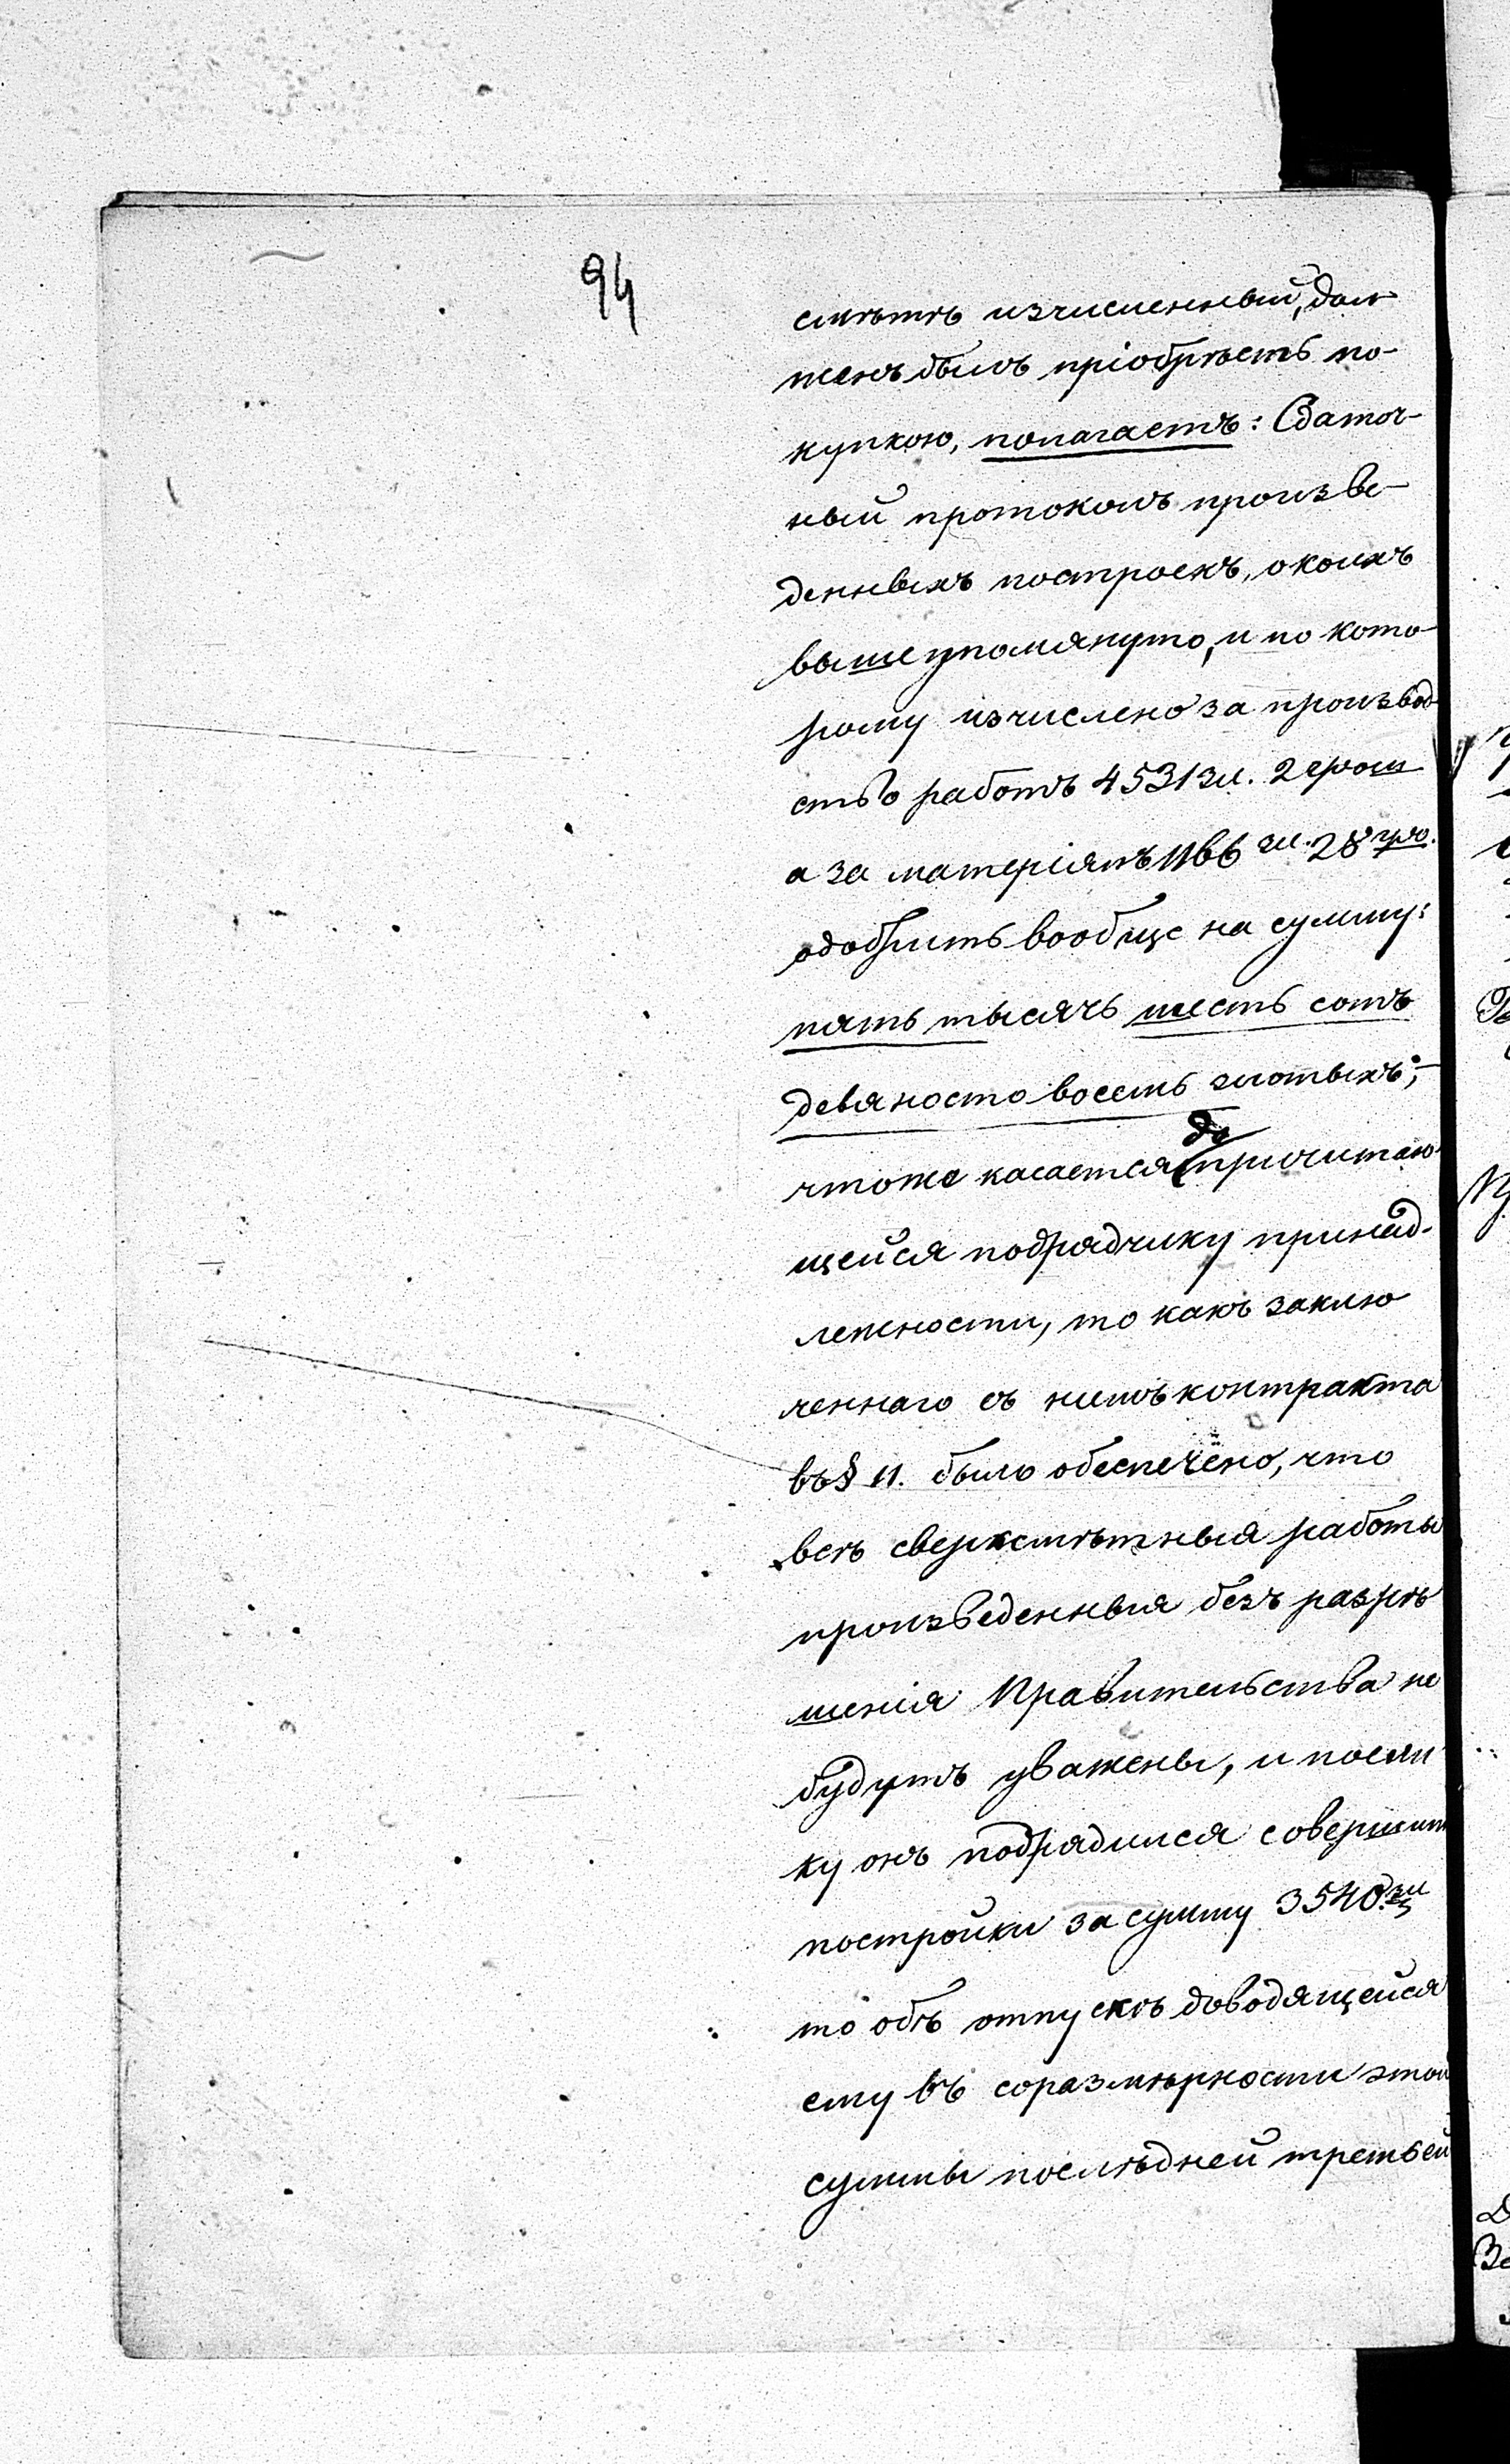 94
смѣтѣ изчисленный, дол
женъ былъ пріобрѣсть по-
купкою, полагаетъ: Сдаточ-
ный протоколъ произве-
денныхъ построекъ, о коихъ
выше упомянуто, и по кото-
рому изчислено за производ-
ство работъ 4531 зл. 2 грош
а за матеріялъ 1166 зл. 28 гро.
одобрить вообще на сумму:
пять тысячъ шесть сотъ
девяносто восемь злотыхъ;-
чтоже касается до причитаю-
щейся подрядчику принад-
лежности, то какъ заклю
ченнаго съ нимъ контракта
въ § 11. было обеспечено, что
всѣ сверхсмѣтныя работы
произведенныя безъ разрѣ
шенія Правительства не
будутъ уважены, и поели-
ку онъ подрядился совершить
постройки за сумму 3540 зл
то объ отпускѣ доводящейся
ему въ соразмѣрности этой
суммы послѣдней третьей